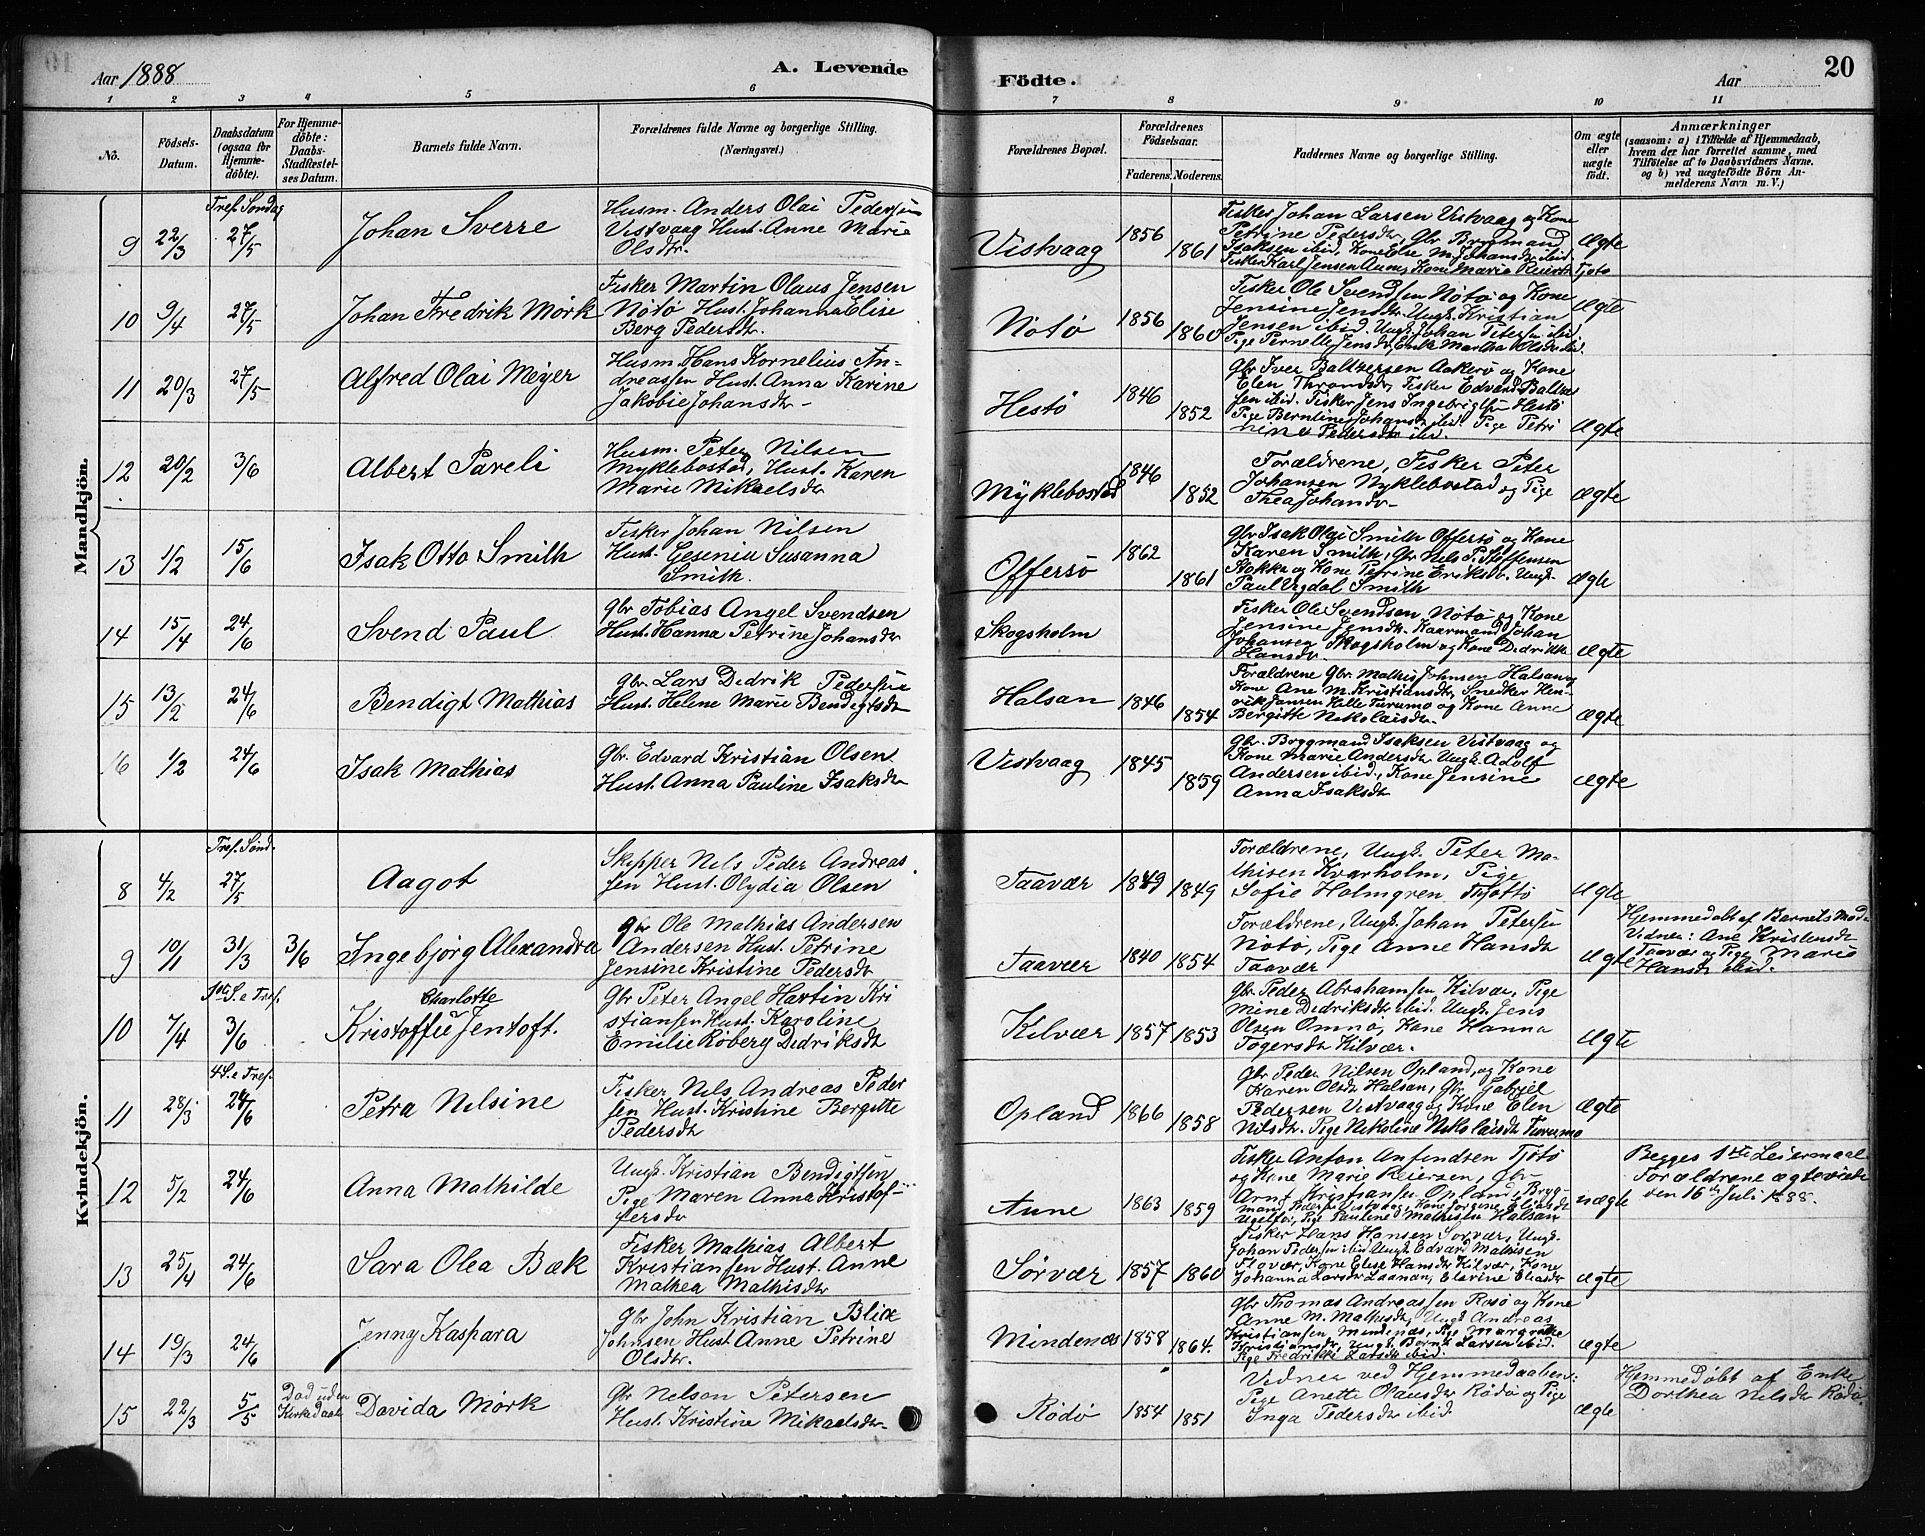 Aar 1888
A. Levende
Fødte.
Aar
20
1 2 3 4 5 6 7 8 9 10 11
No.
Födsels-
Datum.
Daabsdatum
(ogsaa for
Hjemme-
döbte).
For Hjemme-
döbte:
Daabs-
Stadfæstel-
ses Datum.
Barnets fulde Navn.
Forældrenes fulde Navne og borgerlige Stilling.
(Næringsvei.)
Forældrenes Bopæl.
Forældrenes
Fødselsaar.
Faderens. Moderens.
Faddernes Navne og borgerlige Stilling.
Om ægte
eller
uægte
födt.
Anmærkninger
(saasom: a) i Tilfælde af Hjemmedaab,
hvem der har forrettet samme, med
Tilföielse af to Daabsvidners Navne.
og b) ved uægtefödte Börn An-
melderens Navn m. V.)
Mandkjön.
Tref. Søndag
9 22/3 27/5 Johan Sverre
Husm. Anders Olai Pedersen
Vistvaag Hust. Anne Marie
Olsdtr.
Vistvaag 1856 1861
Fisker Johan Larsen Vistvaag og Kone
Petrine Pedersdtr, Gbr Byggmand
Isaksen ibid, Kone Else M. Johansdtr ibid.
Fisker Karl Jensen Aune, Kone Maria Reiersdtr Tjøtø
Ægte
10 9/4 27/5 Johan Fredrik Mørk
Fisker Martin Olaus Jensen
Nötö Hust. Johanna Elise
Berg Pedersdtr.
Nötø 1856 1860
Fisker Ole Svendsen Nötö og Kone
Jensine Jensdtr. Ungk. Kristian
Jensen ibid. Ungk. Johan Petersen ibid.
Pige Pernelle Jensdtr, Enke Martha Olsdtr ibid.
Ægte
11 20/3 27/5 Alfred Olai Meyer
Husm. Hans Kornelius An-
dreassen Hust. Anna Karine
Jakobie Johansdtr -
Hestø 1846 1852
Gbr Iver Baltzersen Aakerø og Kone
Elen Thronsdtr, Fisker Edvard Baltzer
sen ibid. Fisker Jens Ingebrigtsen Hestö
Pige Berntine Johansdtr ibid. Pige Petri
nine Pedersdtr ibid.
Ægte
12 20/2 3/6 Albert Pareli
Husm. Peter Nilsen
Myklebostad, Hust. Karen
Marie Mikaelsdtr
Myklebostad 1846 1852
Forældrene, Fisker Peter
Johansen Myklebostad og Pige
Thea Johansdtr.
Ægte
13 1/2 15/6 Isak Otto Smith
Fisker Johan Nilsen
Hust. Cesenia Susanna
Smith.
Offersø 1862 1861
Gbr Isak Olai Smith Offersø og Kone
Karen Smith, Gbr. Nels P. Steffensen
Rokka og Kone Petrine Eriksdtr. Ungk.
Paul Vigdal Smith
Ægte
14 15/4 24/6 Svend Paul
Gbr Tobias Angel Svendsen
Hust. Hanna Petrine Johansdtr
Skogsholm
Fisker Ole Svendsen, Nötö og Kone
Jensine Jensdtr. Kaarmand Johan
Johansen Skogsholm og Kone Didrikke
Hansdtr.
Ægte
15 13/2 24/6 Bendigt Mathias
Gbr. Lars Didrik Pedersen
Hust. Helene Marie Bendigtsdtr
Halsan 1846 1854
Forældrene Gbr. Mathis Johnsen Halsan og
Kone Ane M. Kristiansdtr, Snedker Hen-
rik Jansen Kille Furumo og Kone Anne
Bergitte Nikolaisdtr.
Ægte
16 1/2 24/6 Isak Mathias
Gbr. Edvard Kristian Olsen
Hust. Anna Pauline Isaksdtr
Vistvaag 1845 1859
Gbr. Byggmand Isaksen Vistvaag og
Kone Marie Andersdtr Ungk. Adolf
Andersen ibid., Kone Jensine
Anna Isaksdtr
Ægte
Kvindekjön.
Tref. Sønd.
8 4/2 27/5 Aagot
Skipper Nels Peder Andreas
sen Hust. Olydia Olsen
Taavær 1849 1849
Forældrene, Ungk. Peter Ma-
thisen Kvarholm, Pige
Sofie Holmgren Thjøttø
Ægte
9 10/1 31/3 3/6 Ingebjörg Alexandra
Gbr Ole Mathias Andersen
Andersen Hust. Petrine
Jensine Kristine Pedersdtr
Taavær 1840 1854
Forældrene, Ungk. Johan Petersen
Nötö, Pige Anne Hansdtr
Taavær
Ægte
Hjemmedöbt af Barnets Moder
Vidner: Ane Kristensdtr
Taavær og Pige Marie
Hansdtr ibid.
1ste S. e Tref.
10 7/4 3/6 Kristoffa Charlotte Jentoft.
Gbr Peter Angel Hartin Kri
stiansen Hust. Karoline
Emilie Röberg Didriksdtr
Kilvær 1857 1853
Gbr. Peder Abrahamsen Kilvær, Pige
Mine Didriksdtr ibid. Ungk. Jens
Olsen Omnö, Kone Hanna
Togersdtr Kilvær.
Ægte
4 S. e Tref.
11 28/3 24/6 Petra Nilsine
Fisker Nils Andreas Peder
sen Hust. Kristine Bergitte
Pedersdtr
Opland 1866 1858
Gbr Peder Nilsen Opland, og Kone
Karen Olsdtr Halsan, Gbr. Gabriel
Pedersen Vistvaag og Kone Elen
Nilsdtr. Pige Nikoline Nikolaisdtr Furumo
Ægte
12 5/2 24/6 Anna Mathilde
Ungk. Kristian Bendigtsen
Pige Maren Anna Kristof-
fersdtr
Aune 1863 1859
Fisker Anton Anfindsen Tjötö
og Kone Marie Reiersen, Gbr
Arnt Kristiansen Opland, Bryg-
mand Pedersen Vistvaag, Kone Jörgine Eliasdtr
Pige Pauline Mathisen Halsan
uægte
Begges 1ste Leiermaal
Forældrene ægteviede
den 16de Juli 1888.
13 25/4 24/6 Sara Olea Bæk
Fisker Mathias Albert
Kristiansen Hust. Anne
Mathea Mathisdtr
Sörvær 1857 1860
Fisker Hans Hansen Sorvær, Ungk.
Johan Pedersen ibid Ungk Edvard Mathisen
Flovær, Kone Elise Hansdtr Kilvær, Kone
Johanna Larsdtr Laanan, Elevine Eliasdtr
Ægte
14 19/3 24/6 Jenny Kaspara
Gbr John Kristian Blix
Johnsen Hust Anne Petrine
Olsdtr.
Mindenæs 1858 1864.
Gbr Thomas Andreassen Rosö og Kone
Anne M. Mathisdtr, Ungk Andreas
Kristiansen, Mindenæs, Pige Margrethe
Kristiansdtr, Ungk. Bernt Larsen ibid.
Pige Fredrikke Larsdtr ibid.
Ægte
15 22/3 5/5 Död uden
Kirkedaab
Davida Mörk
Gbr Nelson Petersen
Hust. Kristine Mikaelsdtr
Rödö 1854 1851
Vidner ved Hjemmedaaben:
Pige Anette Olausdtr Rödö og Pige
Inga Pedersdtr ibid.
Ægte
Hjemmedöbt af Enke
Dorthea Nilsdtr Rödö